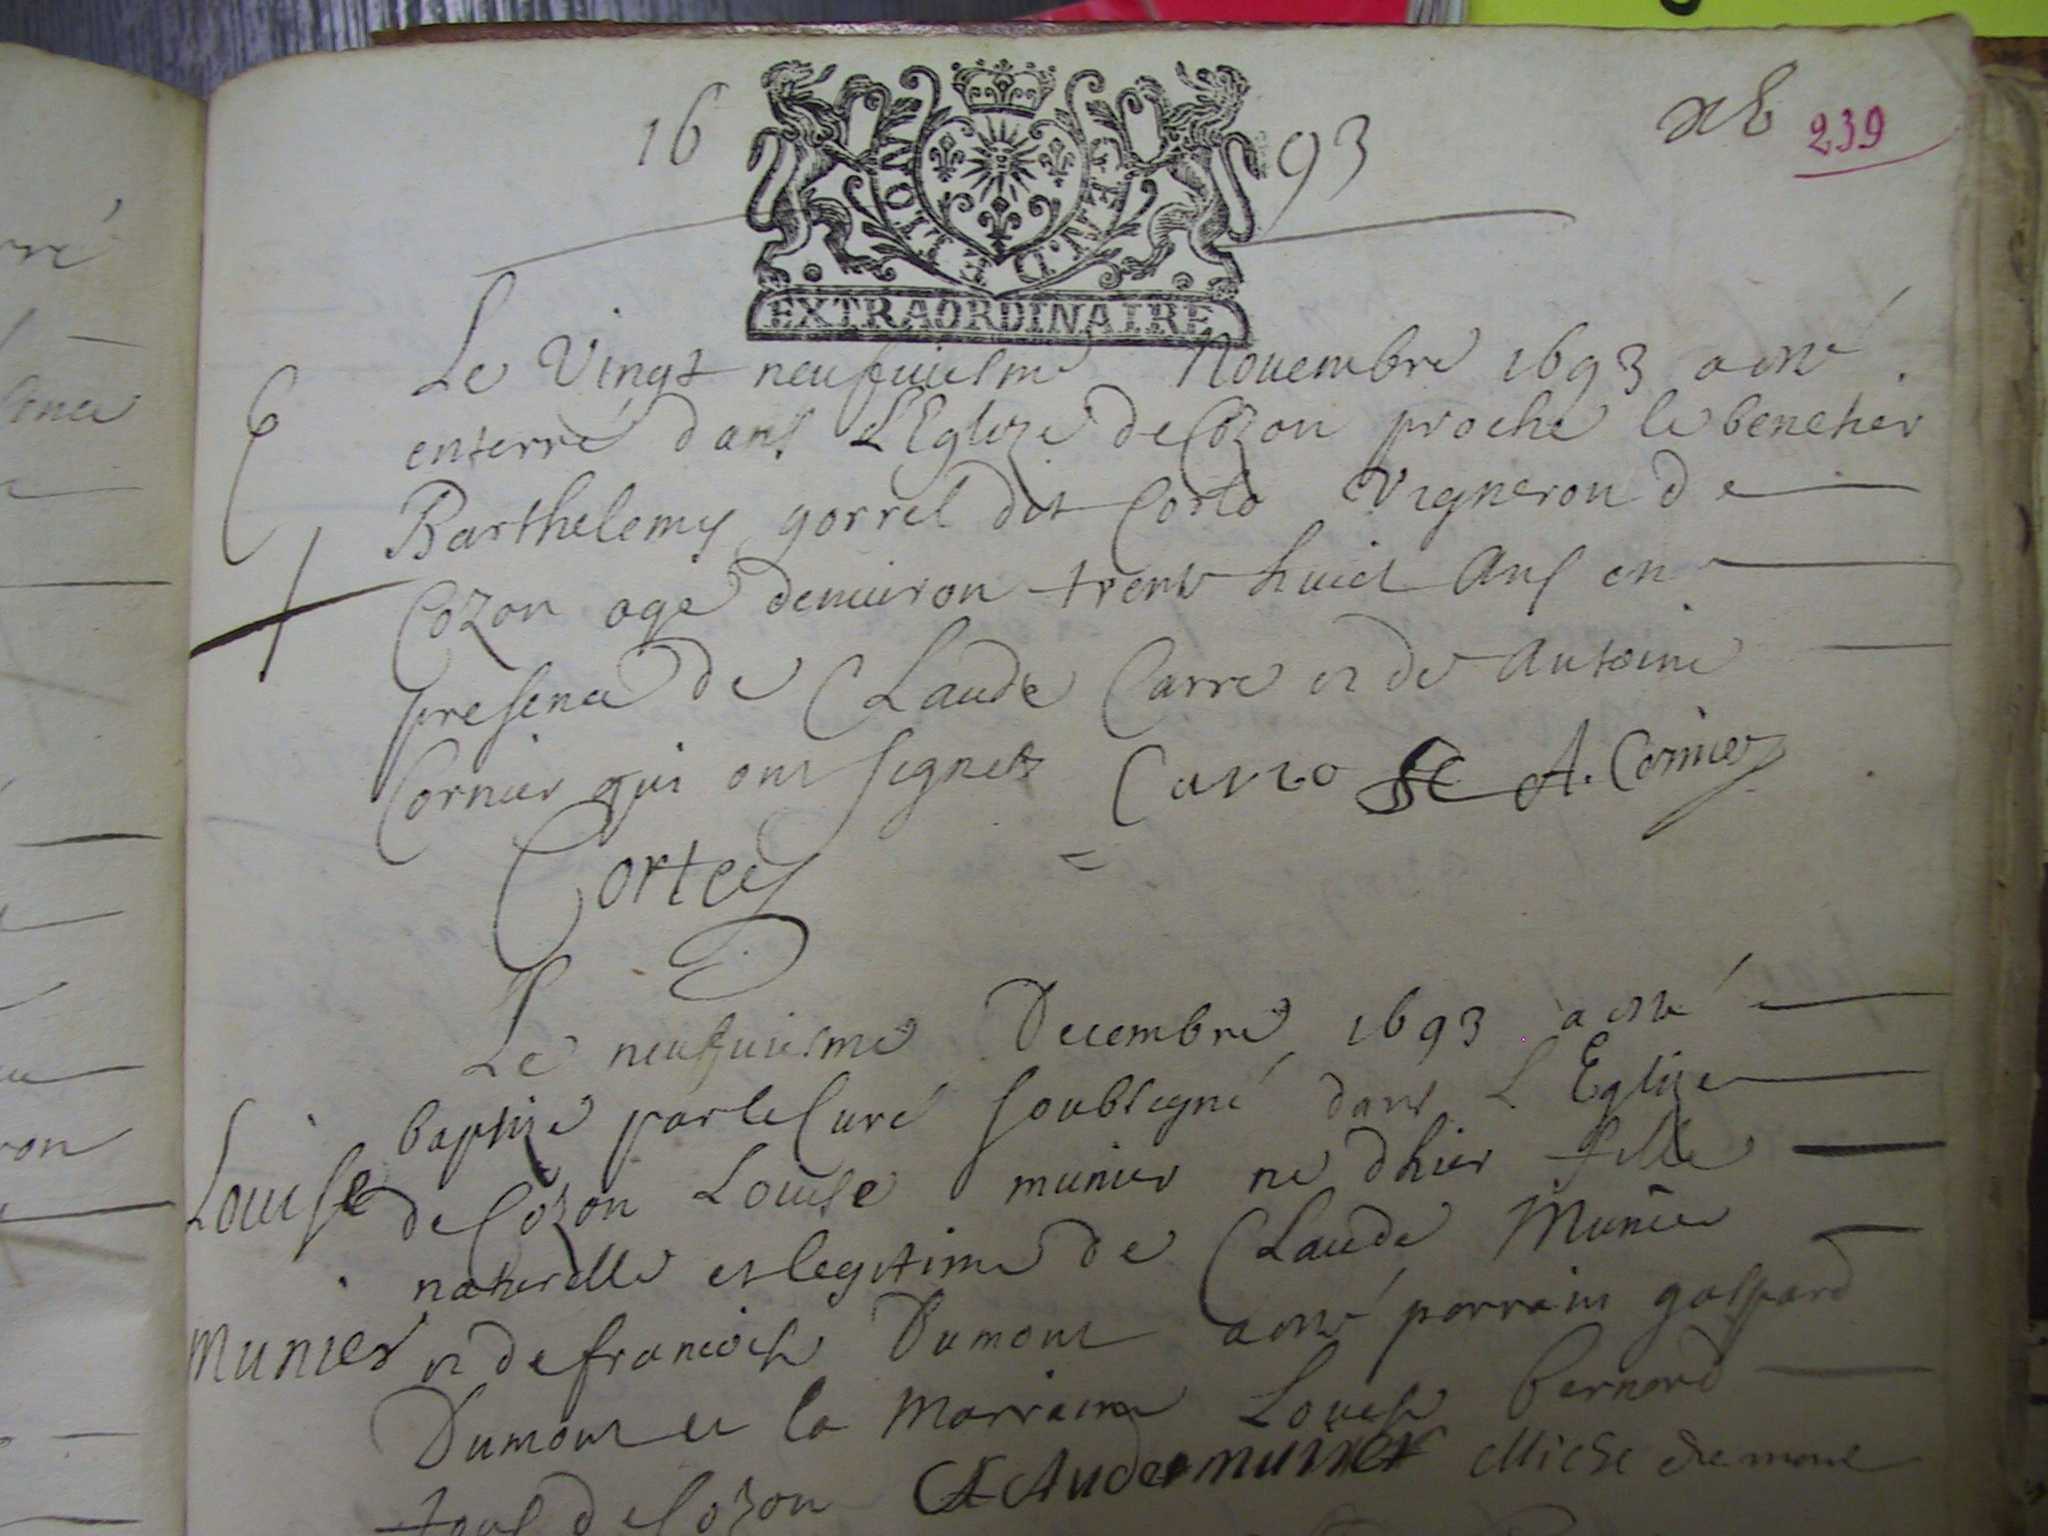 16 93
239
EXTRAORDINAIRE
Le Vingt neufuiesme Nouembre 1693 a esté
enterré dans L'Eglize de Cozon proche le benetier
Barthelemy gorrel dit Corlo Vigneron de
Cozon agé denuiron trente huict ans en
presence de Claude Carre et de Antoine
Cornier qui ont signetz Carro A. Cornier
Cortey
Le neufuiesme Decembre 1693 a esté
baptizé par le Curé soubsigné dans L'Eglize
Louise de Cozon Louise munier né d'hier fille
naturelle et legitime de Claude Munier
Munier et de francoise Dumont a esté parrain gaspard
Dumont et la Marraine Louise bernard
tous de Cozon CLAude munier